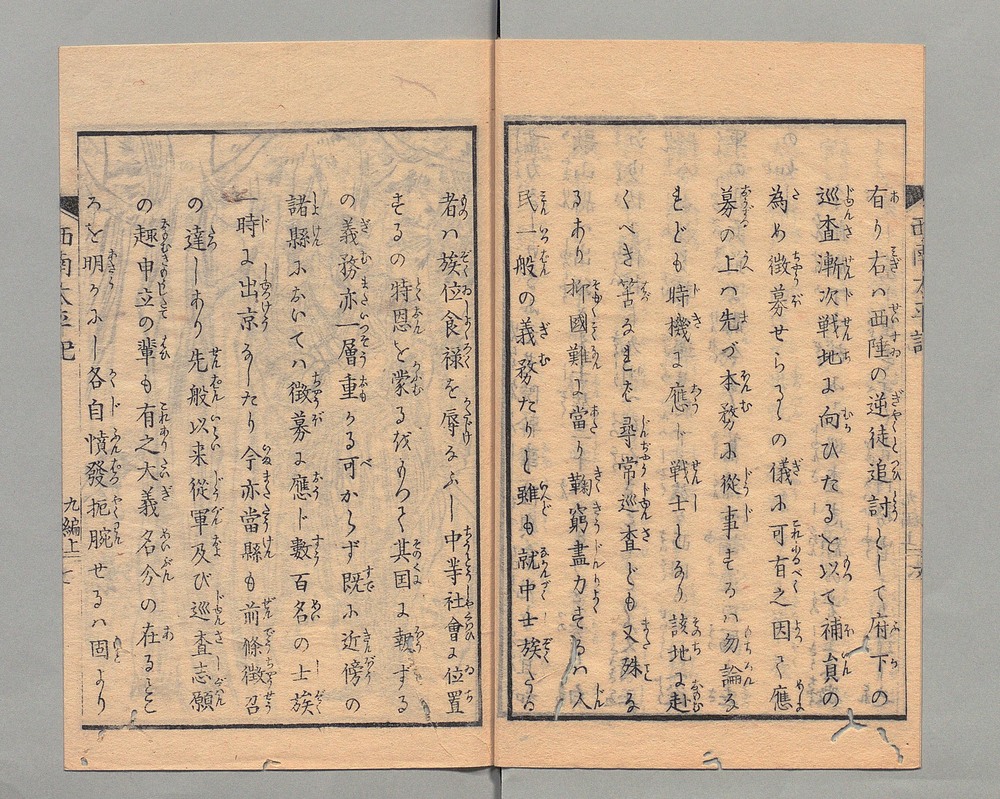 有り右ハ西陲の逆徒追討として府下の
巡査漸次戦地に向ひたるを以て補員の
為め徴募せらるゝの儀に可有之因て應
募の上ハ先づ本務に従事するハ勿論な
れども時機に應ド戦士となり該地に赴
くべき筈なれバ尋常巡査とも又殊な
るあり抑國難に當り鞠窮盡力するハ人
民一般の義務たりと雖も就中士族たる
者ハ族位食禄を辱なふし中等社會に位置
するの特恩を蒙る依て其国に報ずる
の義務亦一層重かる可からず既に近傍の
諸縣においてハ徴募に應ド數百名の士族
一時に出京なしたり今亦當縣も前條徴召
の達しあり先般以来従軍及び巡査志願
の趣申立の輩も有之大義名分の在ると
ろを明かにし各自憤發扼腕せるハ固より
西南太平記
九編上